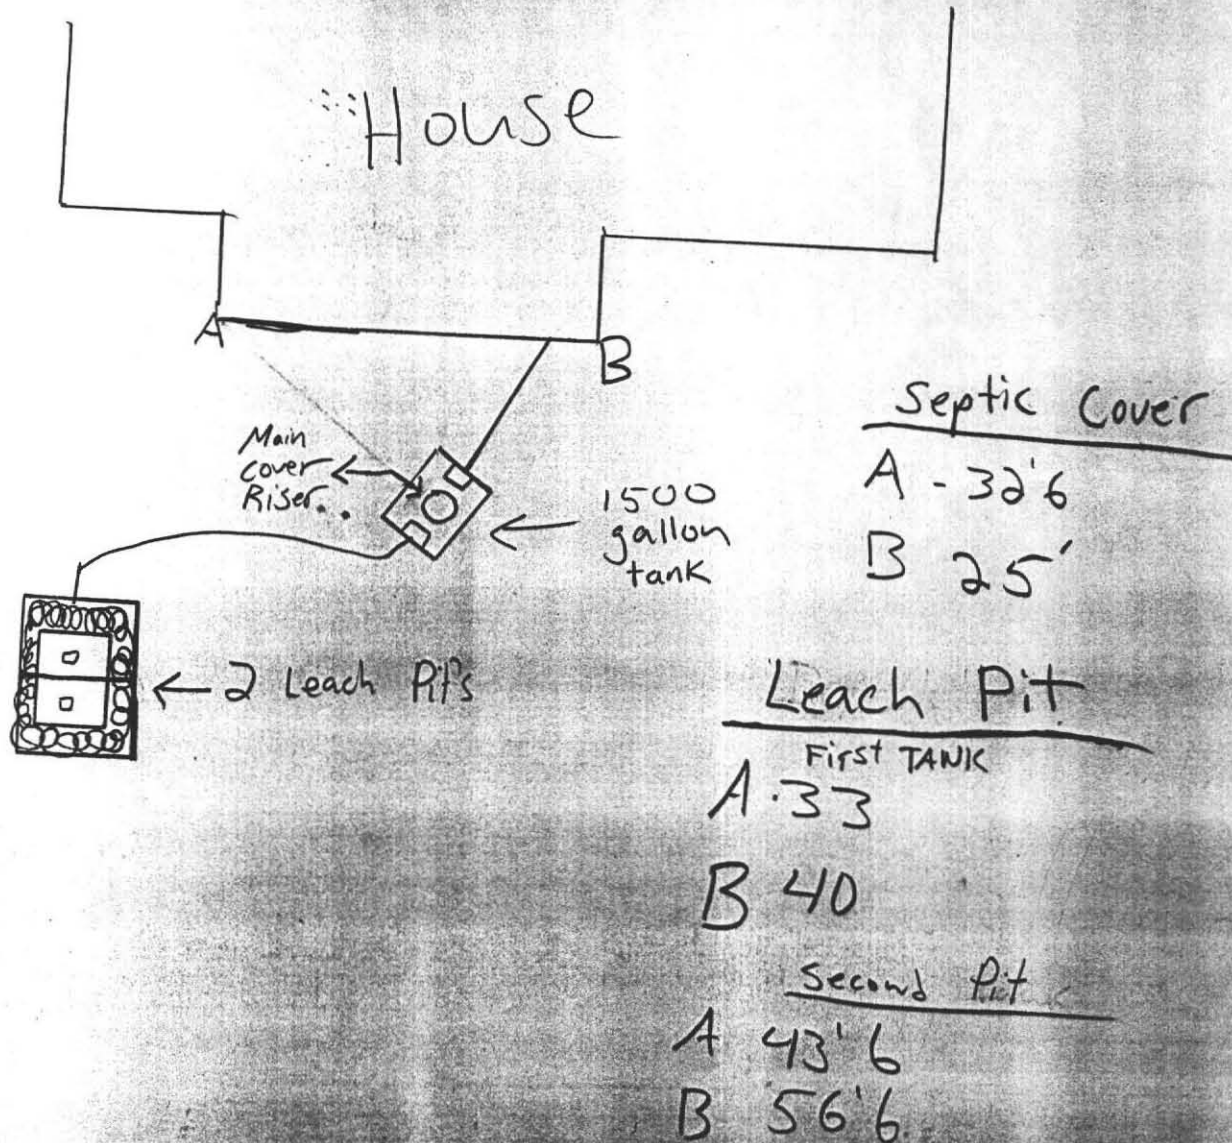 House
A
B
Main
cover
Riser..
1500
gallon
tank
2 Leach Pits
Septic Cover
A - 32'6
B 25'
Leach Pit
First TANK
A. 33
B 40
Second Pit
A 43'6
B 56'6.